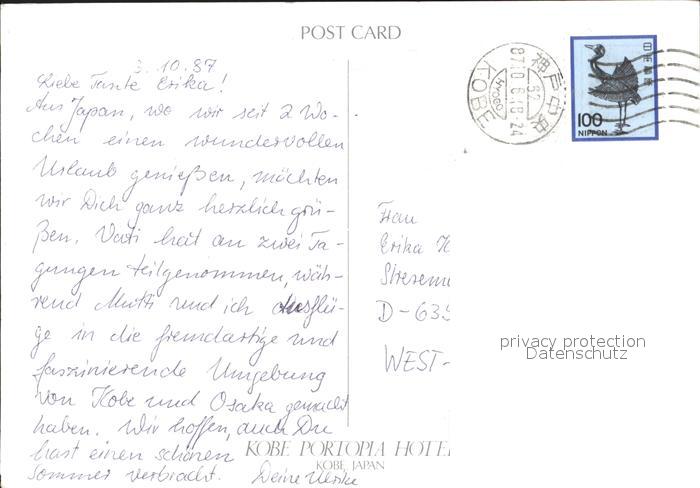 POST CARD
3. 10. 87
Liebe Tante Erika!
Aus Japan, wo wir seit 2 Wo-
chen einen wundervollen
Urlaub genießen, möchten
wir Dich ganz herzlich grü-
ßen. Vati hat an zwei Ta-
gungen teilgenommen, wäh-
rend Mutti und ich Ausflü-
ge in die fremdartige und
faszinierende Umgebung
von Kobe und Osaka gemacht
haben. Wir hoffen, auch Du
hast einen schönen
Sommer verbracht. Deine Ulrike
神戸中央
87.10.6.18-24
KOBE
HYOGO
日本郵便
100
NIPPON
Frau
Erika
D-635
WEST-
privacy protection
Datenschutz
KOBE PORTOPIA HOTEL
KOBE, JAPAN